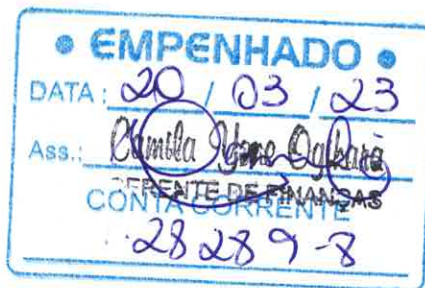 • EMPENHADO •
DATA: 20 / 03 / 23
Ass.: Camila
GERENTE DE FINANÇAS
CONTA CORRENTE
28289-8